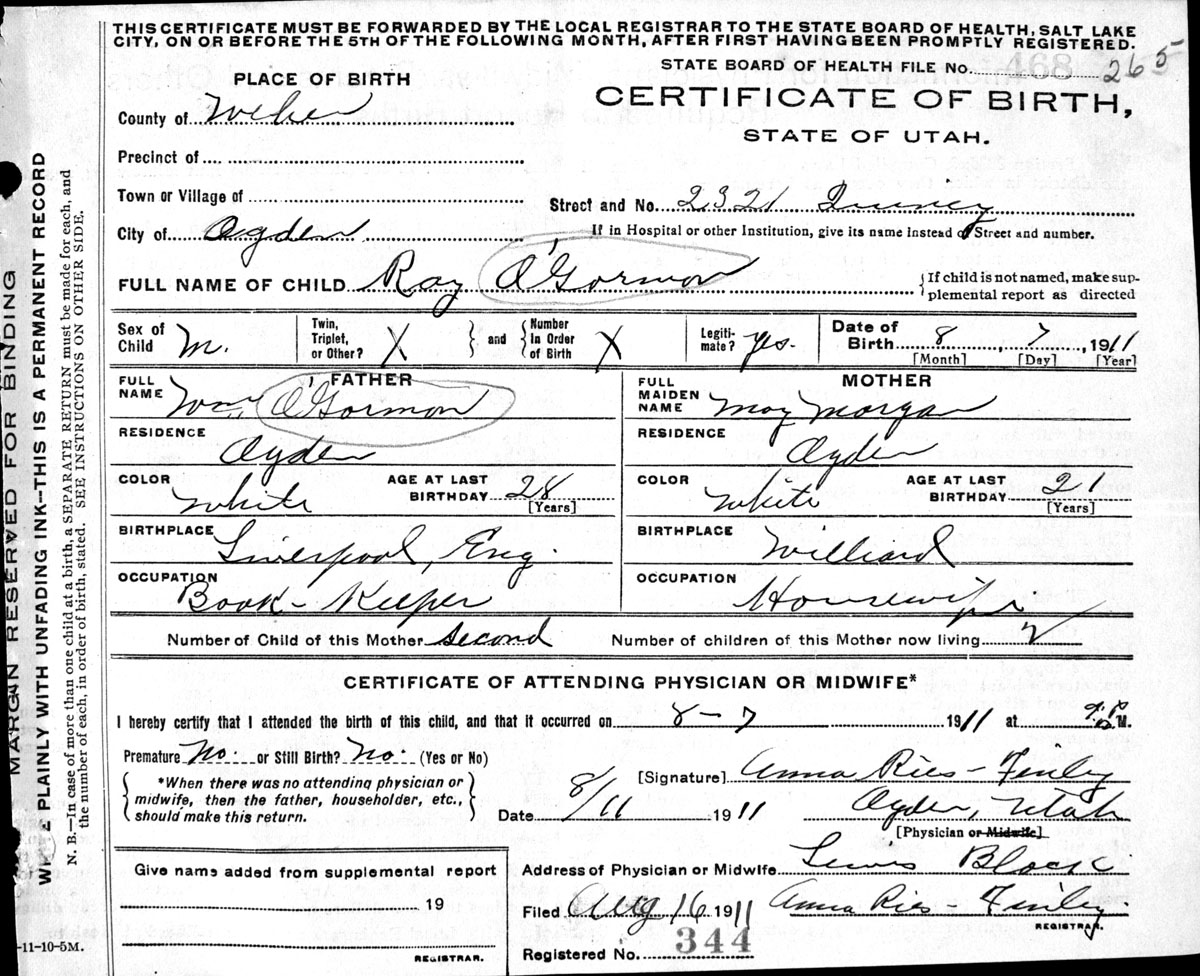 THIS CERTIFICATE MUST BE FORWARDED BY THE LOCAL REGISTRAR TO THE STATE BOARD OF HEALTH, SALT LAKE
CITY, ON OR BEFORE THE 5TH OF THE FOLLOWING MONTH, AFTER FIRST HAVING BEEN PROMPTLY REGISTERED.
STATE BOARD OF HEALTH FILE No. 468 265
PLACE OF BIRTH
CERTIFICATE OF BIRTH,
STATE OF UTAH.
County of Weber
Precinct of
Town or Village of
Street and No. 2321 Quincy
City of Ogden
If in Hospital or other Institution, give its name instead of Street and number.
FULL NAME OF CHILD Ray O'Gormon
{If child is not named, make sup-
plemental report as directed
Sex of Child M.
Twin, Triplet, or Other? X
and
Number In Order of Birth X
Legiti-mate? yes.
Date of Birth 8, 7, 1911
[Month] [Day] [Year]
FATHER
FULL NAME Wm O'Gormon
RESIDENCE
Ogden
COLOR White
AGE AT LAST BIRTHDAY 28
[Years]
BIRTHPLACE
Liverpool, Eng.
OCCUPATION
Book-Keeper
MOTHER
FULL MAIDEN NAME May Morgan
RESIDENCE
Ogden
COLOR White
AGE AT LAST BIRTHDAY 21
[Years]
BIRTHPLACE
Williard
OCCUPATION
Housewife
Number of Child of this Mother second
Number of children of this Mother now living 2
CERTIFICATE OF ATTENDING PHYSICIAN OR MIDWIFE*
I hereby certify that I attended the birth of this child, and that it occurred on 8-7 1911 at M.
Premature No. or Still Birth? No. (Yes or No)
*When there was no attending physician or
midwife, then the father, householder, etc.,
should make this return.
[Signature] Anna Ries-Finley
Date 8/11 1911
Ogden, Utah
[Physician or Midwife]
Address of Physician or Midwife Lewis Block
Filed Aug 16 1911 Anna Ries Finley
REGISTRAR.
Registered No. 344
Give name added from supplemental report
19
REGISTRAR.
-11-10-5M.
MARGIN RESERVED FOR BINDING
PLAINLY WITH UNFADING INK--THIS IS A PERMANENT RECORD
N. B.—In case of more than one child at a birth, a SEPARATE RETURN must be made for each, and
the number of each, in order of birth, stated. SEE INSTRUCTIONS ON OTHER SIDE.